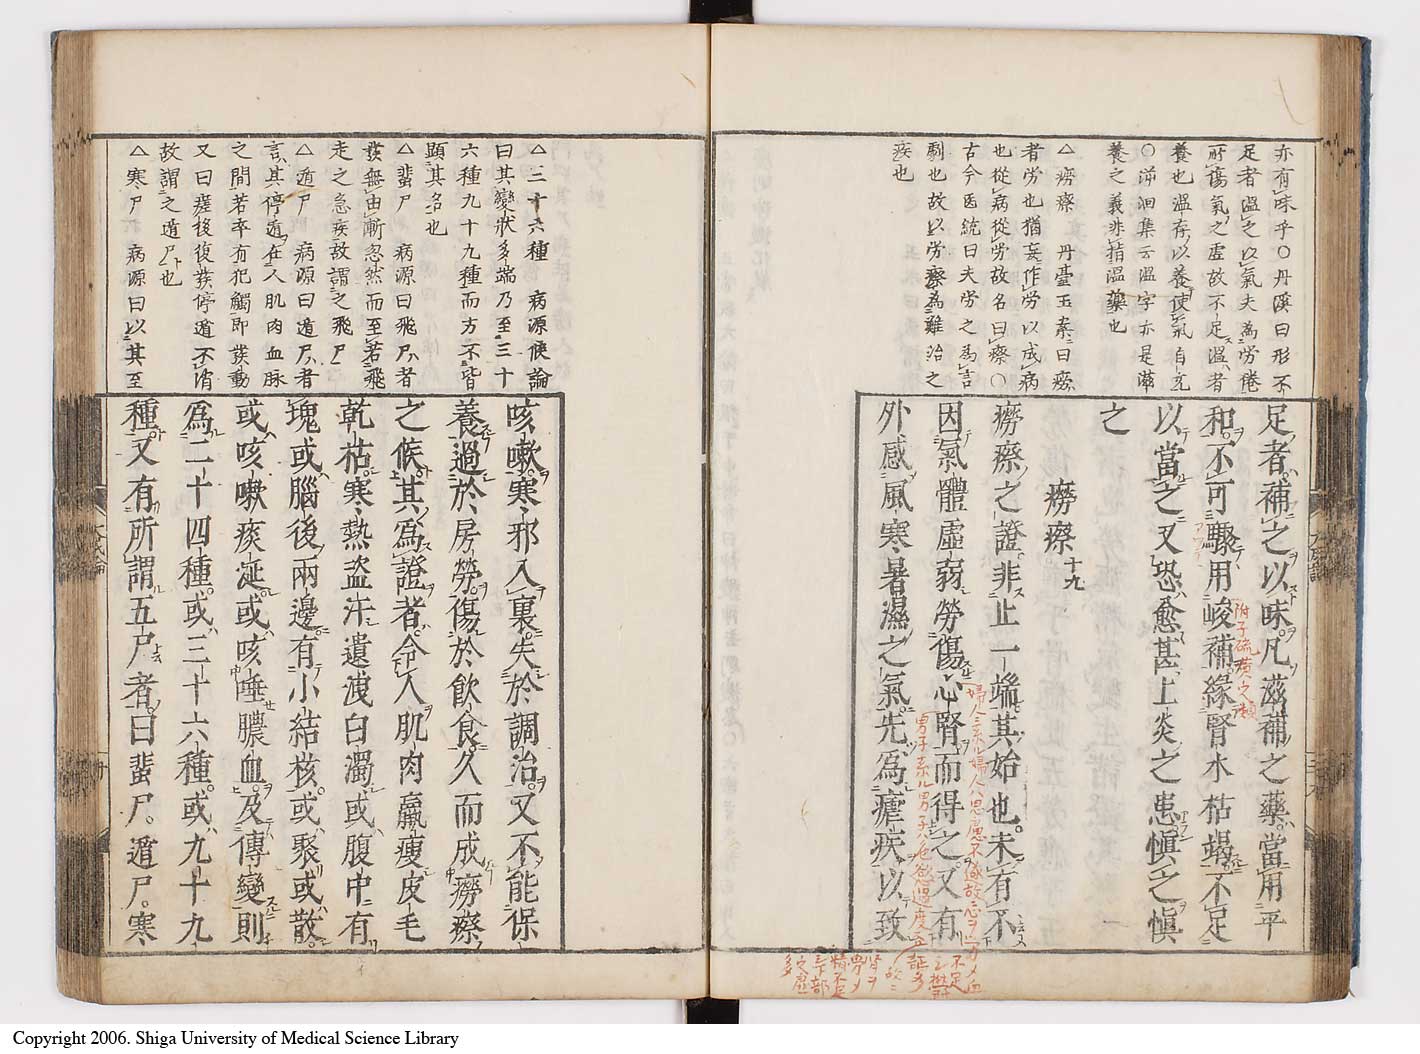 亦有味乎○丹溪曰形不
足者溫之以氣夫爲勞倦
所傷氣之虛故不足溫者
養也溫存以養使氣自充
○泝洄集云溫字亦是滋
養之義非指溫藥也
△癆瘵 丹臺玉案曰癆
者勞也猶妄作勞以成病
也從病從勞故名曰瘵○
古今医統曰夫勞之爲言
劇也故以労瘵爲難治之
疾也
足者補之以味凡滋補之藥當用平
和不可驟用峻補緣腎水枯竭不足
以當之又恐愈甚上炎之患愼之愼
之
癆瘵十九
癆瘵之證非止一端其始也未有不
因氣體虛弱勞傷心腎而得之又有
外感風寒暑濕之氣先爲瘧疾以致
附子硫黄之類
△三十六種 病源候論
曰其變狀多端乃至三十
六種九十九種而方不皆
顯其名也
△蜚尸 病源曰飛尸者
發無由漸忽然而至若飛
走之急疾故謂之飛尸
△遁尸 病源曰遁尸者
言其停遁在人肌肉血脉
之間若卒有犯觸即發動
又曰瘥後復發停遁不消
故謂之遁尸也
△寒尸 病源曰以其至
咳嗽寒邪入裏失於調治又不能保
養過於房勞傷於飲食久而成癆瘵
之候其爲證者令人肌肉羸瘦皮毛
乾枯寒熱盜汗遺洩白濁或腹中有
塊或腦後兩邊有小結核或聚或散
或咳嗽痰涎或咳唾膿血及傳變則
爲二十四種或三十六種或九十九
種又有所謂五尸者曰蜚尸遁尸寒
Copyright 2006. Shiga University of Medical Science Library